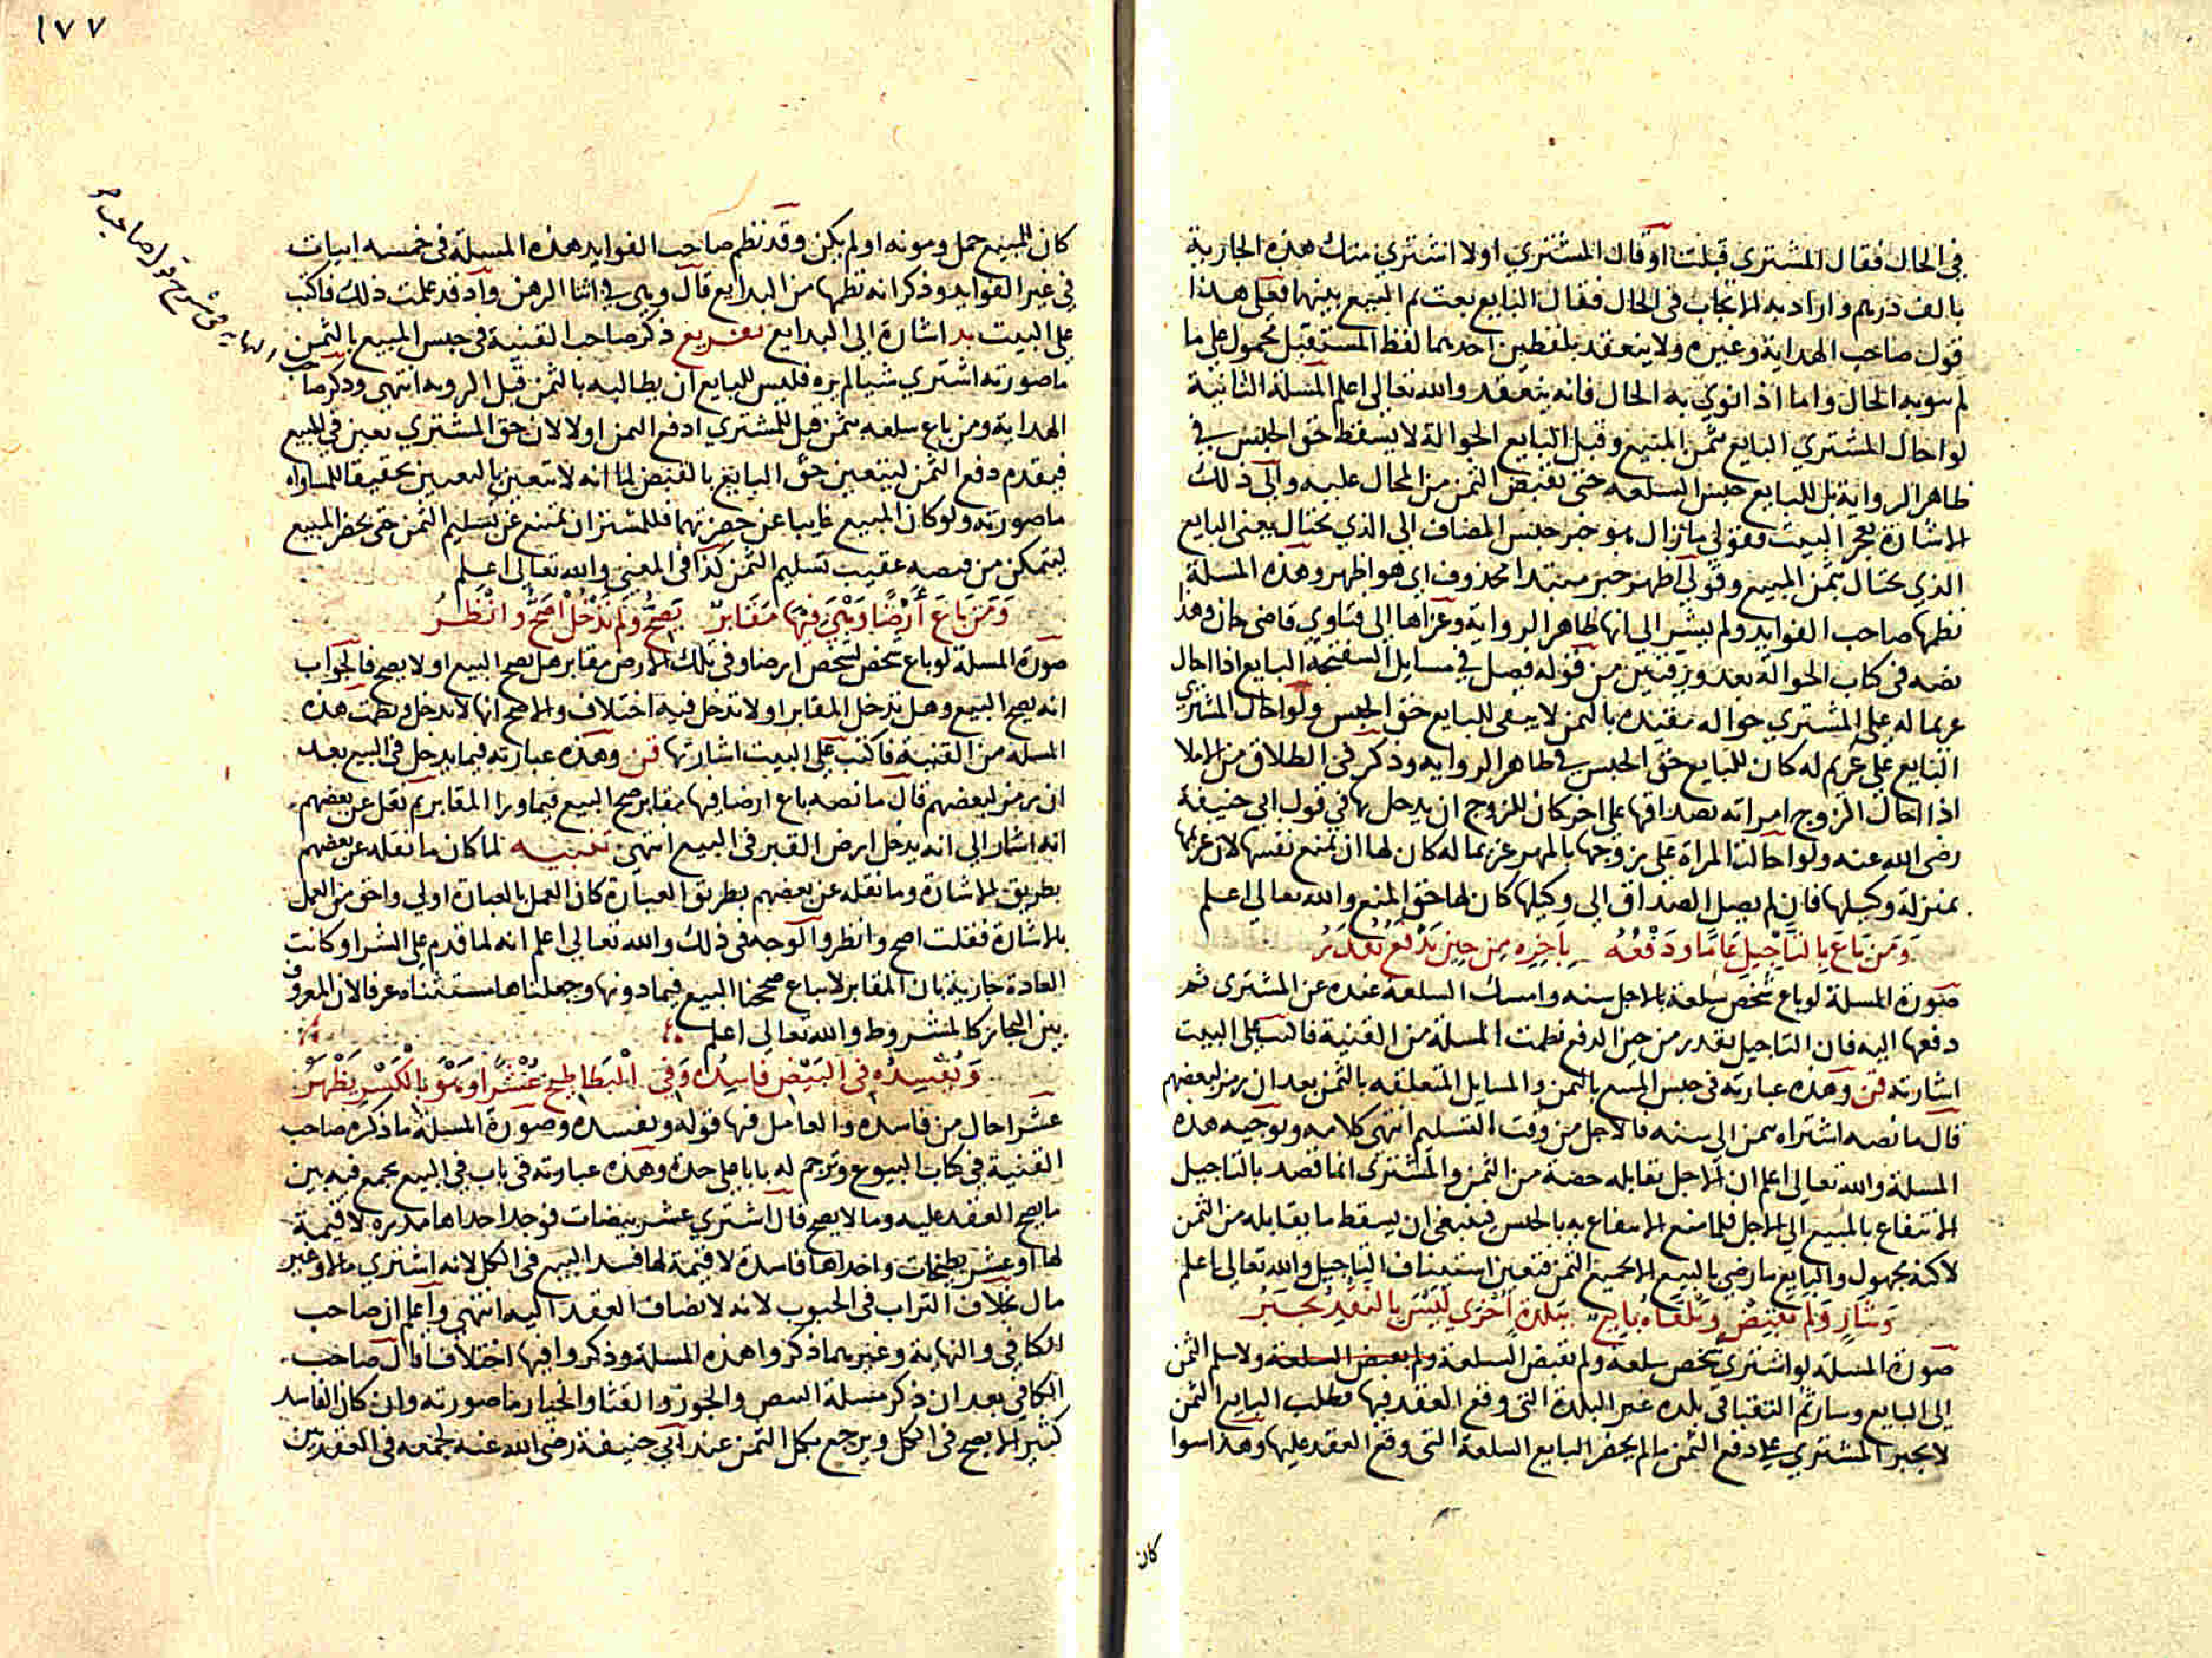 في الحال فقال المشتري قبلت او قال المشتري اولا اشتري منك هذه الجارية
بالف درهم واراد به الايجاب في الحال فقال البايع بعت تم البيع بينهما فعلى هذا
قول صاحب الهداية وغيره ولا ينعقد بلفظين احدهما لفظ المستقبل محمول على ما
لم ينو به الحال واما اذا نوي به الحال فانه ينعقد والله تعالى اعلم المسلة الثانية
لو احال المشتري البايع بثمن المبيع وقبل البايع الحوالة لا يسقط حق الحبس في
ظاهر الرواية بل للبايع حبس السلعه حتى يقبض الثمن من المحال عليه والى ذلك
الاشارة بعجز البيت فقولي مازال هو خبر حبس المضاف الى الذي يحتال يعني البايع
الذي يحتال بثمن المبيع وقولي اظهر خبر مبتدا محذوف اي هو اظهر وهذه المسلة
نظمها صاحب الفوايد ولم يشير الى انها ظاهر الرواية وعزاها الى فتاوي قاضي خان وهذا
نصه في كتاب الحوالة بعد ورقتين من قوله فصل في مسايل السفتجة البايع اذا احال
غريما له على المشتري حواله مقيده بالثمن لا يبقى للبايع حق الحبس ولو احال المشتري
البايع على غريم له كان للبايع حق الحبس في ظاهر الروايه وذكر في الطلاق من الاملا
اذا احال الزوج امراته بصداقها على اخر كان للزوج ان يدخل بها في قول ابي حنيفة
رضي الله عنه ولو احالت المراة على زوجها بالمهر غريما له كان لها ان تمنع نفسها لان غريمها
بمنزلة وكيلها فان لم يصل الصداق الى وكيلها كان لها حق المنع والله تعالى اعلم
وَمَن بَاعَ بِالتَاجِيلِ عَامًا وَدَفْعُهُ بِاَخِرِهِ مِن حِينِ يَدْفَعُ يُقْدَرُ
صورة المسلة لو باع شخص سلعة بالاجل سنه وامسك السلعة عنده عن المشتري ثم
دفعها اليه فان التاجيل يقدر من حين الدفع نظمت المسلة من القنية فاكتب على البيت
اشارته قن وهذه عبارته في حبس المبيع بالثمن والمسايل المتعلقه بالثمن بعد ان رمز لبعضهم
قال ما نصه اشتراه بثمن الى سنه فالاجل من وقت التسليم انتهى كلامه وتوجيه هذه
المسلة والله تعالى اعلم ان الاجل تقابله حصة من الثمن والمشتري انما قصد بالتاجيل
الانتفاع بالمبيع الى الاجل فلما منع الانتفاع به بالحبس فينبغي ان يسقط ما يقابله من الثمن
لاكنه مجهول والبايع ما رضي بالبيع الا بجميع الثمن فتعين استيناف التاجيل والله تعالى اعلم
وَشَارٍ وَلَم يَقْبِضْ وَيَلْقَاهُ بَايِع بِبَلدة اُخْرَي لَيْسَ بِالنَقْدِ يُجْبَرُ
صورة المسلة لو اشتري شخص سلعه ولم يقبض السلعة ولم يقبض السلعة ولا سلم الثمن
الى البايع وسار ثم التقيا في بلده غير البلدة التي وقع العقد فيها فطلب البايع الثمن
لا يجبر المشتري على دفع الثمن مالم يحضر البايع السلعة التي وقع العقد عليها وهذا سوا
كان
١٧٧
كان للمبيع حمل ومونه او لم يكن وقد نظم صاحب الفوايد هذه المسلة في خمسه ابيات
في غير الفوايد وذكر انه نظمها من البدايع قال وهي في اثنا الرهن واد قد علمت ذلك فاكتب
على البيت بد اشارة الى البدايع تفريع ذكر صاحب القنية في حبس المبيع بالثمن
ما صورته اشتري شيا لم يره فليس للبايع ان يطالبه بالثمن قبل الرويه انتهى وذكر صاحب
الهداية ومن باع سلعه بثمن قيل للمشتري ادفع الثمن اولا لان حق المشتري تعين في المبيع
فيقدم دفع الثمن ليتعين حق البايع بالقبض لما انه لا يتعين بالتعيين تحقيقا للمساواه
ما صورته ولو كان المبيع غايبا عن حضرتهما فللمشتر ان يمتنع عن تسليم الثمن حتى يحضر المبيع
ليتمكن من قبضه عقيب تسليم الثمن كذا في المغني والله تعالى اعلم
وَمَن بَاعَ أَرْضًا وَهْيَ فِيهَا مَقَابرٌ يَصِحُّ وَلَم تَدْخُلْ اَصَحُّ وَانْظَرُ
صورة المسلة لو باع شخص لشخص ارضا وفي تلك الارض مقابر هل يصح البيع او لا يصح فالجواب
انه يصح البيع وهل تدخل المقابر او لا تدخل فيه اختلاف والاصح انها لا تدخل ونظمت هذه
المسله من القنية فاكتب على البيت اشارتها قن وهذه عبارته فيما يدخل في البيع بعد
ان رمز لبعضهم قال ما نصه باع ارضا فيها مقابر صح البيع فيما ورا المقابر ثم نقل عن بعضهم
انه اشار الى انه يدخل ارض القبر في البيع انتهى تنبيه لما كان ما نقله عن بعضهم
بطريق الاشارة وما نقله عن بعضهم بطريق العبارة كان العمل بالعبارة اولي واحق من العمل
بالاشارة فقلت اصح وانظر والوجه في ذلك والله تعالى اعلم انه لما قدم على الشرا وكانت
العادة جارية بان المقابر لا تباع صححنا البيع فيما دونها وجعلناها مستثناه عرفا لان المعروف
بين التجار كالمشروط والله تعالى اعلم
وَيُفْسِدُه فِي البَيْض فَاسِدُه وَفِي الْبَطَاطِيخ عَشْرًا وَهْوَ بِالْكَسْرِ يَظْهَرُ
عشرا حال من فاسده والعامل فيها قوله ويفسده وصورة المسلة ما ذكره صاحب
القنية في كتاب البيوع وترجم له بابا على حدة وهذه عبارته في باب في البيع يجمع فيه بين
ما يصح العقد عليه وما لا يصح قال اشتري عشر بيضات فوجد احداها مذره لا قيمة
لها او عشر بطيخات واحداها فاسدة لا قيمة لها فسد البيع في الكل لانه اشتري مالا وغير
مال بخلاف التراب في الحبوب لانه لا يضاف العقد اليه انتهى واعلم ان صاحب
الكافي والنهاية وغيرهما ذكروا هذه المسلة وذكروا فيها اختلافا قال صاحب
الكافي بعد ان ذكر مسلة البيض والجوز والقثا والخيار ما صورته وان كان الفاسد
كثيرا لا يصح في الكل ويرجع بكل الثمن عند ابي حنيفة رضي الله عنه لجمعه في العقد بين
النهايه في شرح قول صاحب